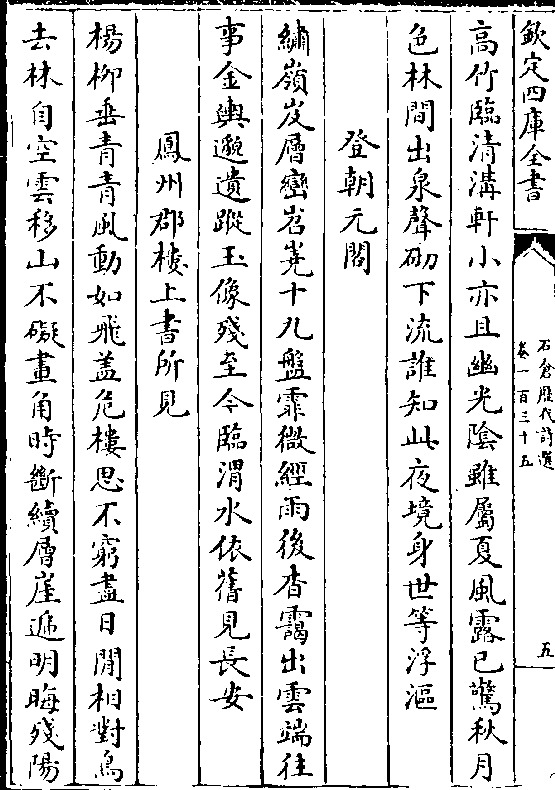 欽定四庫全書
石倉歷代詩選
卷一百三十五
五
高竹臨清溝軒小亦且幽光陰雖屬夏風露已驚秋月
色林間出泉聲砌下流誰知此夜境身世等浮漚
登朝元閣
繡嶺岌層巒岧嶤十八盤霏微經雨後杳靄出雲端往
事金輿邈遺蹤玉像殘至今臨渭水依舊見長安
鳳州郡樓上書所見
楊柳垂青青風動如飛蓋危樓思不窮盡日閒相對鳥
去林自空雲移山不礙畫角時斷續層崖遞明晦殘陽